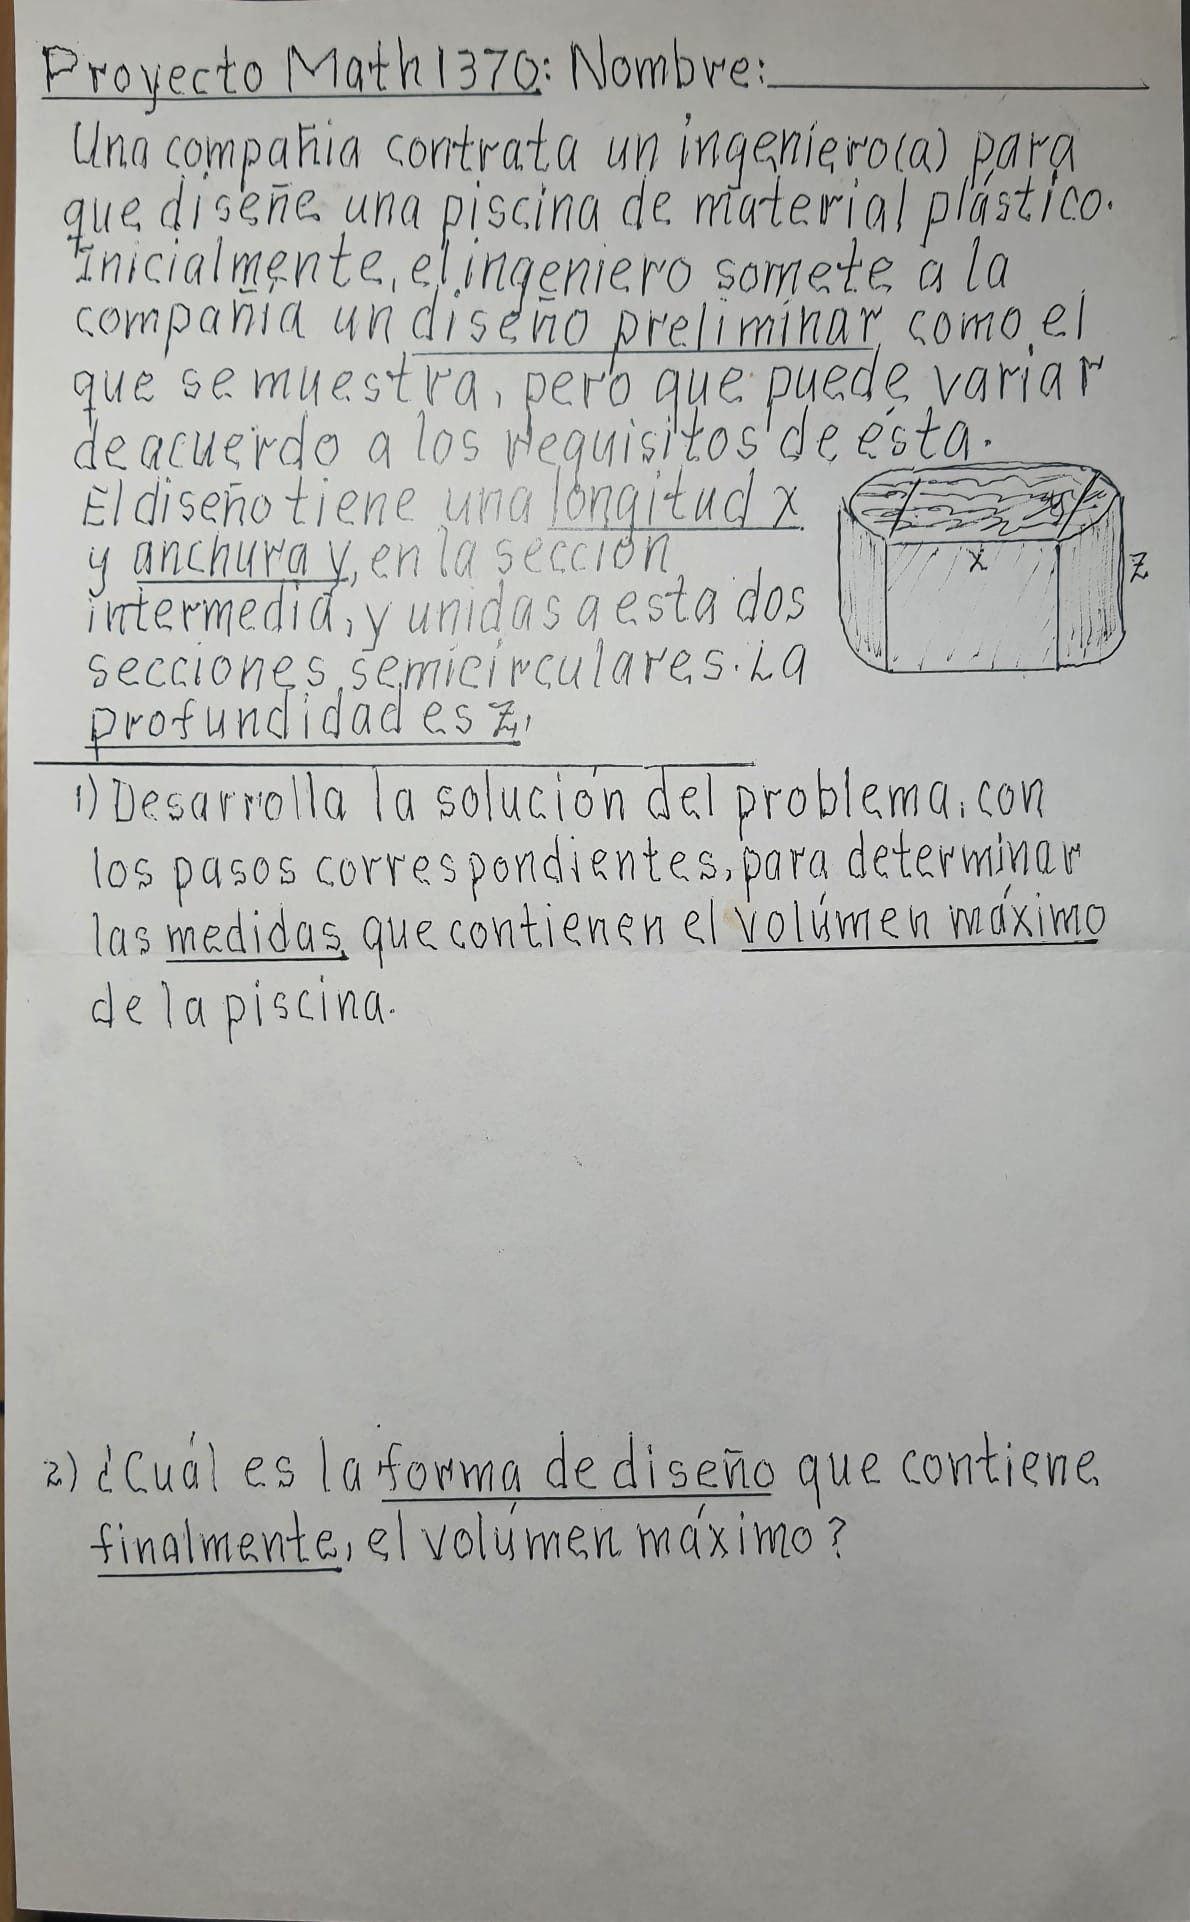 Proyecto Math 1370: Nombre:
Una compañia contrata un ingeniero(a) para
que diseñe una piscina de material plástico.
Inicialmente, el ingeniero somete a la
compañia un diseño preliminar como el
que se muestra, pero que puede variar
de acuerdo a los requisitos de ésta.
El diseño tiene una longitud x
y anchura y, en la sección
intermedia, y unidas a esta dos
secciones semicirculares. La
profundidad es z.
x
z
1) Desarrolla la solución del problema, con
los pasos correspondientes, para determinar
las medidas que contienen el volúmen máximo
de la piscina.
2) ¿Cuál es la forma de diseño que contiene
finalmente, el volúmen máximo?